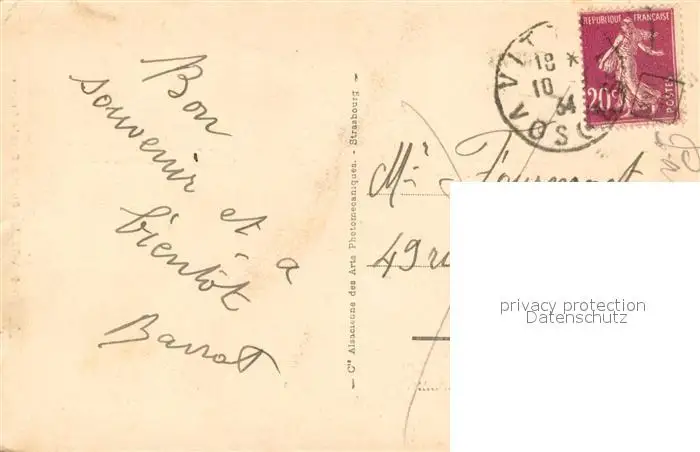 Bon
souvenir et à
bientôt
Barrot
— Cie Alsacienne des Arts Photomécaniques. - Strasbourg —
RÉPUBLIQUE FRANÇAISE
20c
POSTES
VIT
18 *
10
34
VOSG
Mr
49 ru
privacy protection
Datenschutz